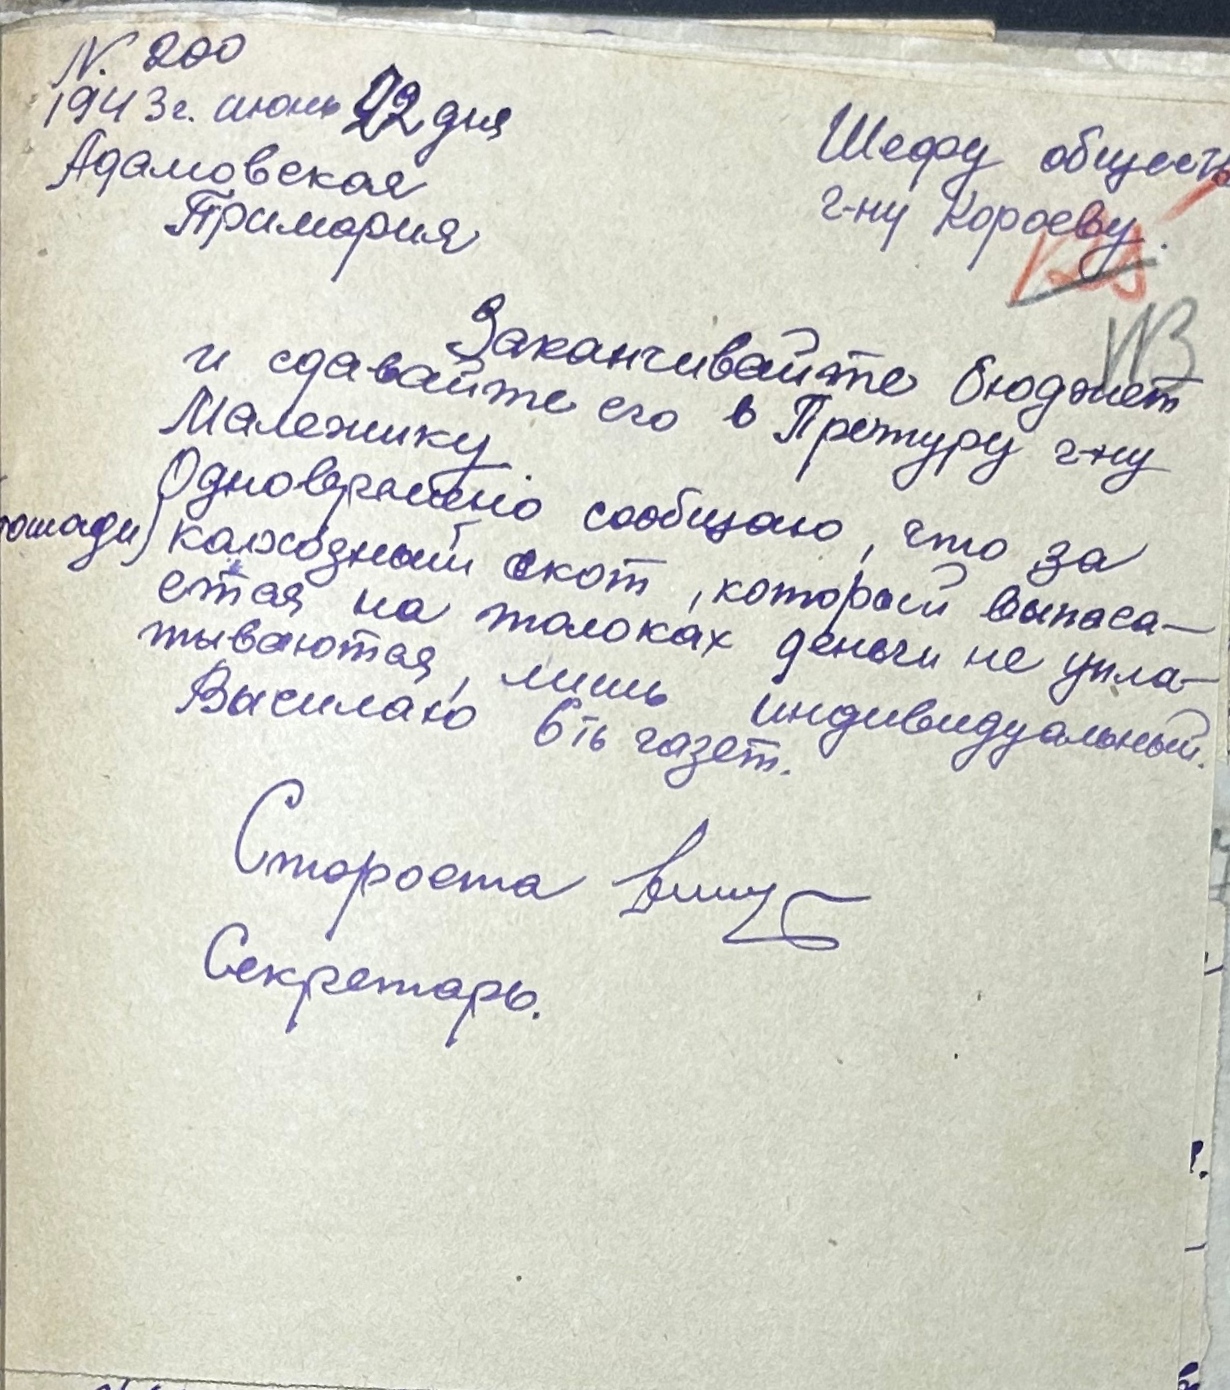 N. 200
1943 г. июнь 22 дня
Адамовская
Примария
Шефу общест
г-ну Короеву.
113
Заканчивайте бюджет
и сдавайте его в Претуру г-ну
Малежику
Одновремено сообщаю, что за
лошади) калхозный скот, который выпаса-
ется на толоках деньги не упла-
тываются, лишь индивидуальный.
Высилаю 6ть газет.
Староста
Секретарь.